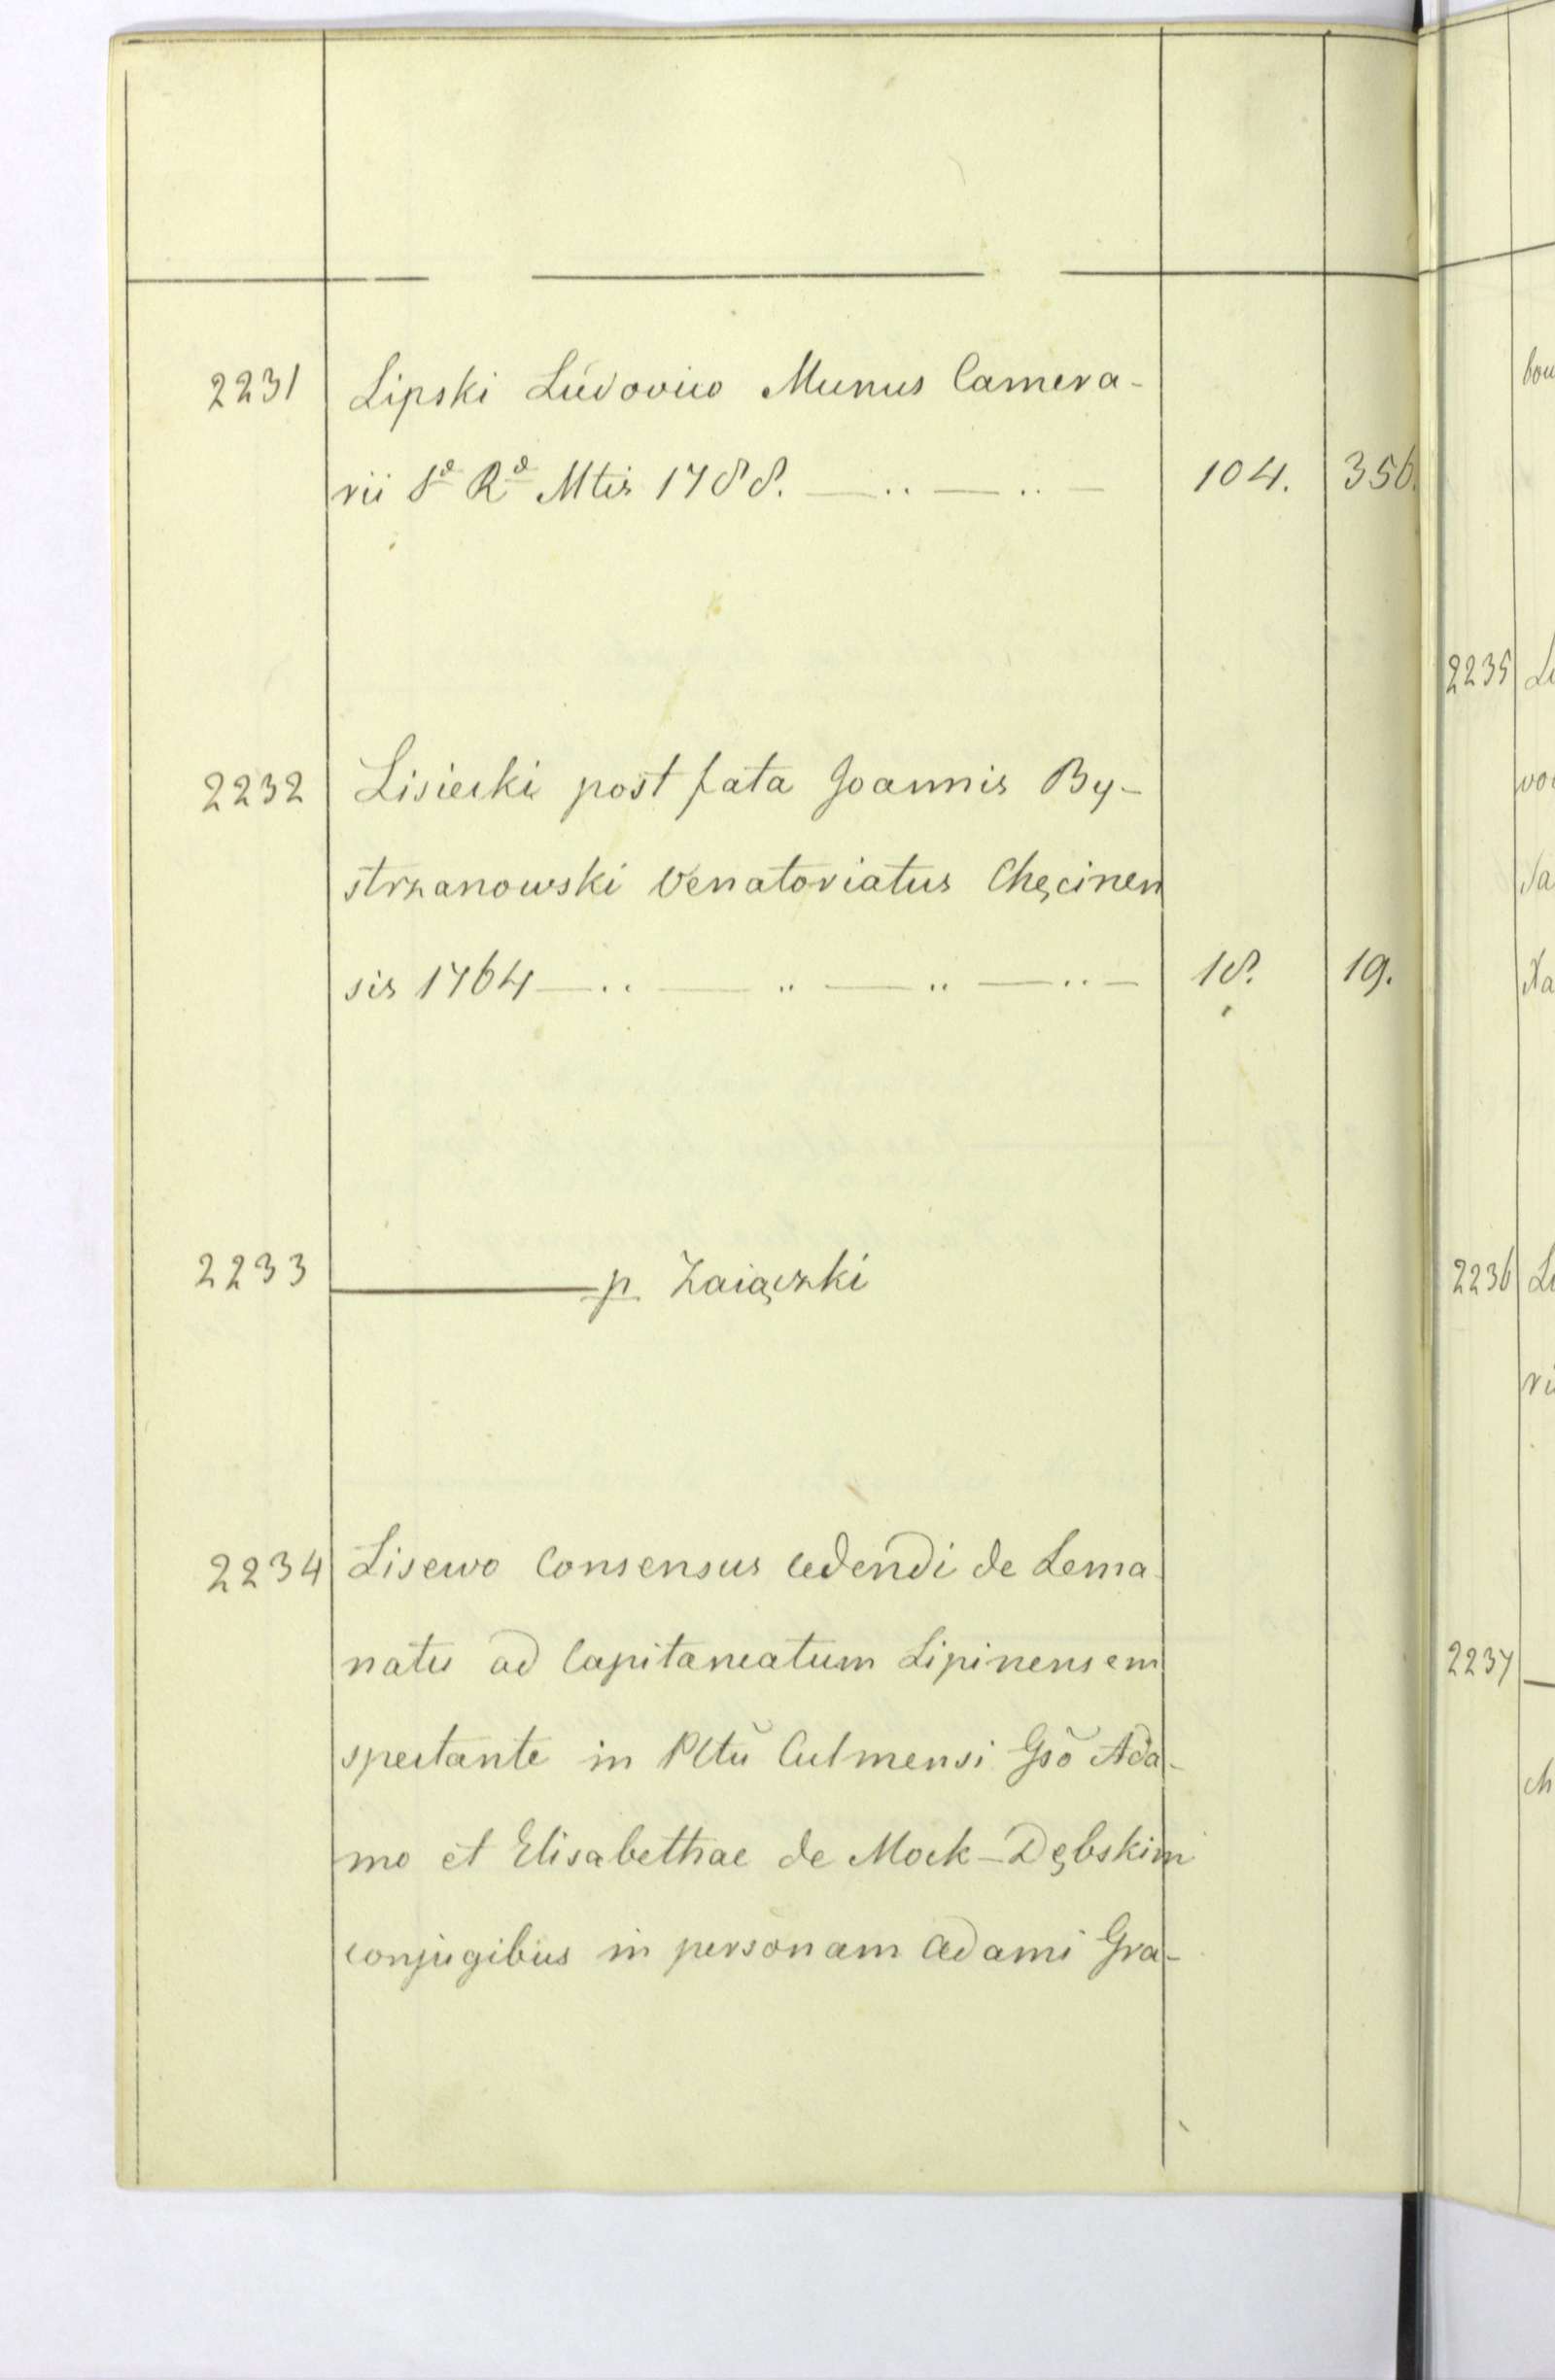 2231 Lipski Ludovico Munus Camera-
rii Sæ Ræ Mtis 1788. 104. 356.
2232 Lisiecki post fata Joannis By-
strzanowski Venatoriatus Chęcinen
sis 1764 18. 19.
2233 p. Zaiączki
2234 Lisewo Consensus cedendi de Lema-
natu ad Capitaneatum Lipinensem
spectante in Pltũ Culmensi Gsõ Ada-
mo et Elisabethae de Mock-Dębskim
conjugibus in personam Adami Gra-
2235
2236
2237